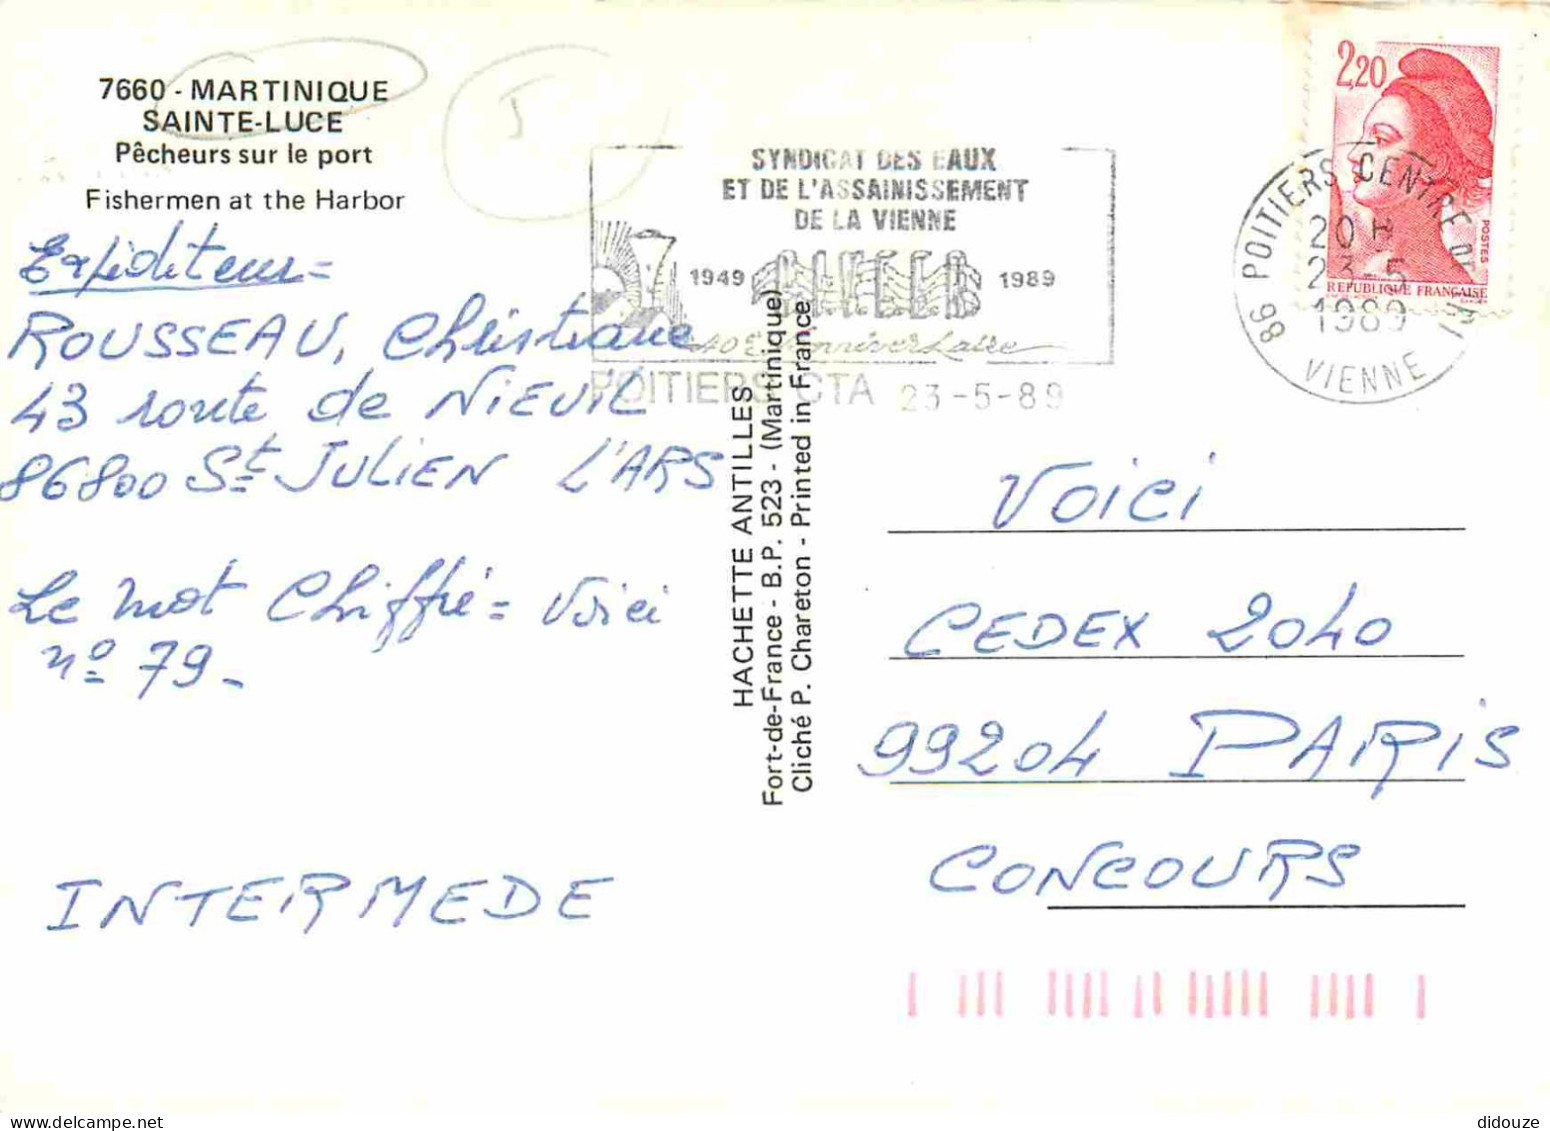 7660 - MARTINIQUE
SAINTE-LUCE
Pêcheurs sur le port
Fishermen at the Harbor
Expéditeur =
ROUSSEAU, Christiane
43 route de NIEUIL
86800 St JULIEN L'ARS
Le mot Chiffré = Voici
n° 79 -
INTERMEDE
SYNDICAT DES EAUX
ET DE L'ASSAINISSEMENT
DE LA VIENNE
1949 1989
40E Anniversaire
POITIERS CTA 23-5-89
HACHETTE ANTILLES
Fort-de-France - B.P. 523 - (Martinique)
Cliché P. Chareton - Printed in France
2,20
POSTES
REPUBLIQUE FRANÇAISE
86 POITIERS CENTRE DE TRI
20 H
23-5
1989
VIENNE
Voici
CEDEX 2040
99204 PARIS
CONCOURS
didouze